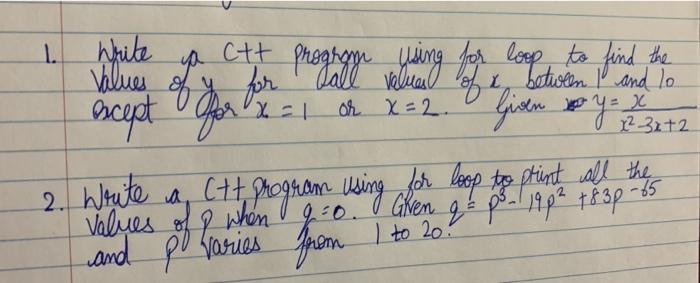 1. Write a C++ program using for loop to find the
values of y for all values of x between 1 and 10
except for x = 1 or x = 2. Given y = x
x²-3x+2
2. Write a C++ program using for loop to print all the
values of p when q = 0. Given q = p³ - 19p² + 83p - 65
and p varies from 1 to 20.